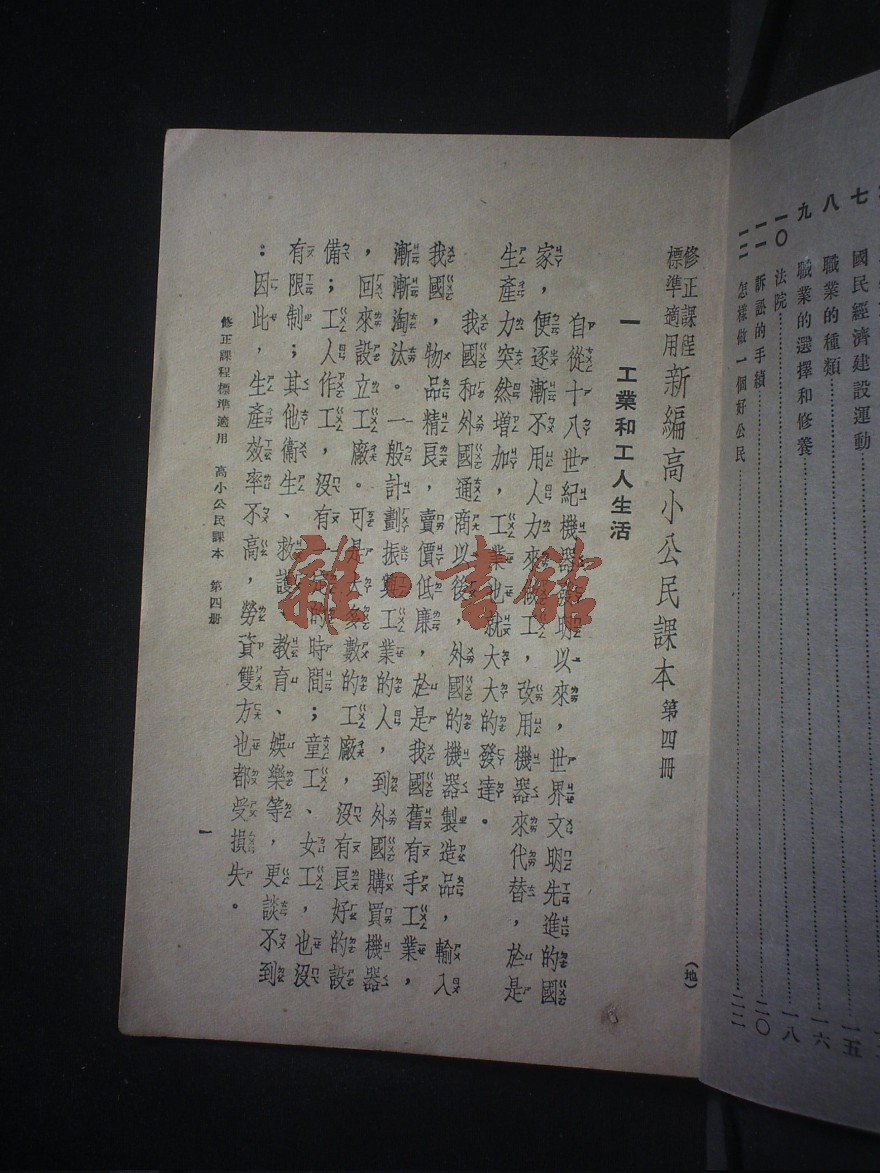 七 國民經濟建設運動 一五
八 職業的種類 一六
九 職業的選擇和修養 一八
一〇 法院
一一 訴訟的手續 二〇
一二 怎樣做一個好公民 二二
修正課程標準適用 新編高小公民課本 第四冊
(地)
一 工業和工人生活
自從十八世紀機器發明以來，世界文明先進的國
家，便逐漸不用人力來做工，改用機器來代替，於是
生產力突然增加，工業也就大大的發達。
我國和外國通商以後，外國的機器製造品，輸入
我國，物品精良，賣價低廉，於是我國舊有手工業，
漸漸淘汰。一般計劃振興工業的人，到外國購買機器
，回來設立工廠。可是大多數的工廠，沒有良好的設
備；工人作工，沒有一定的時間；童工、女工，也沒
有限制；其他衛生、救護、教育、娛樂等，更談不到
：因此，生產效率不高，勞資雙方也都受損失。
修正課程標準適用 高小公民課本 第四冊
一
雜·書館